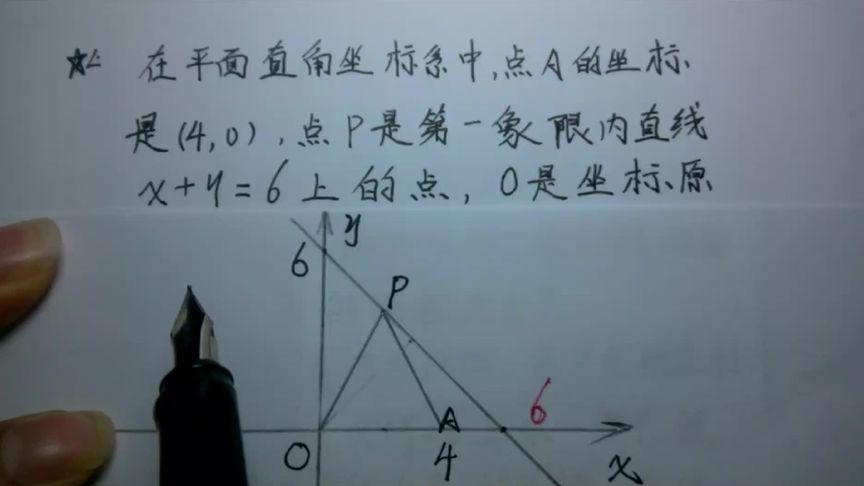 在平面直角坐标系中,点A的坐标
是(4,0),点P是第一象限内直线
x+y=6上的点,O是坐标原
y
6
P
6
A
O
4
x